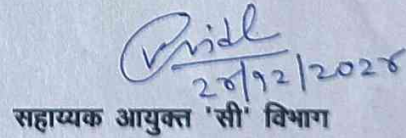 २४|१२|२०२४
सहाय्यक आयुक्त 'सी' विभाग